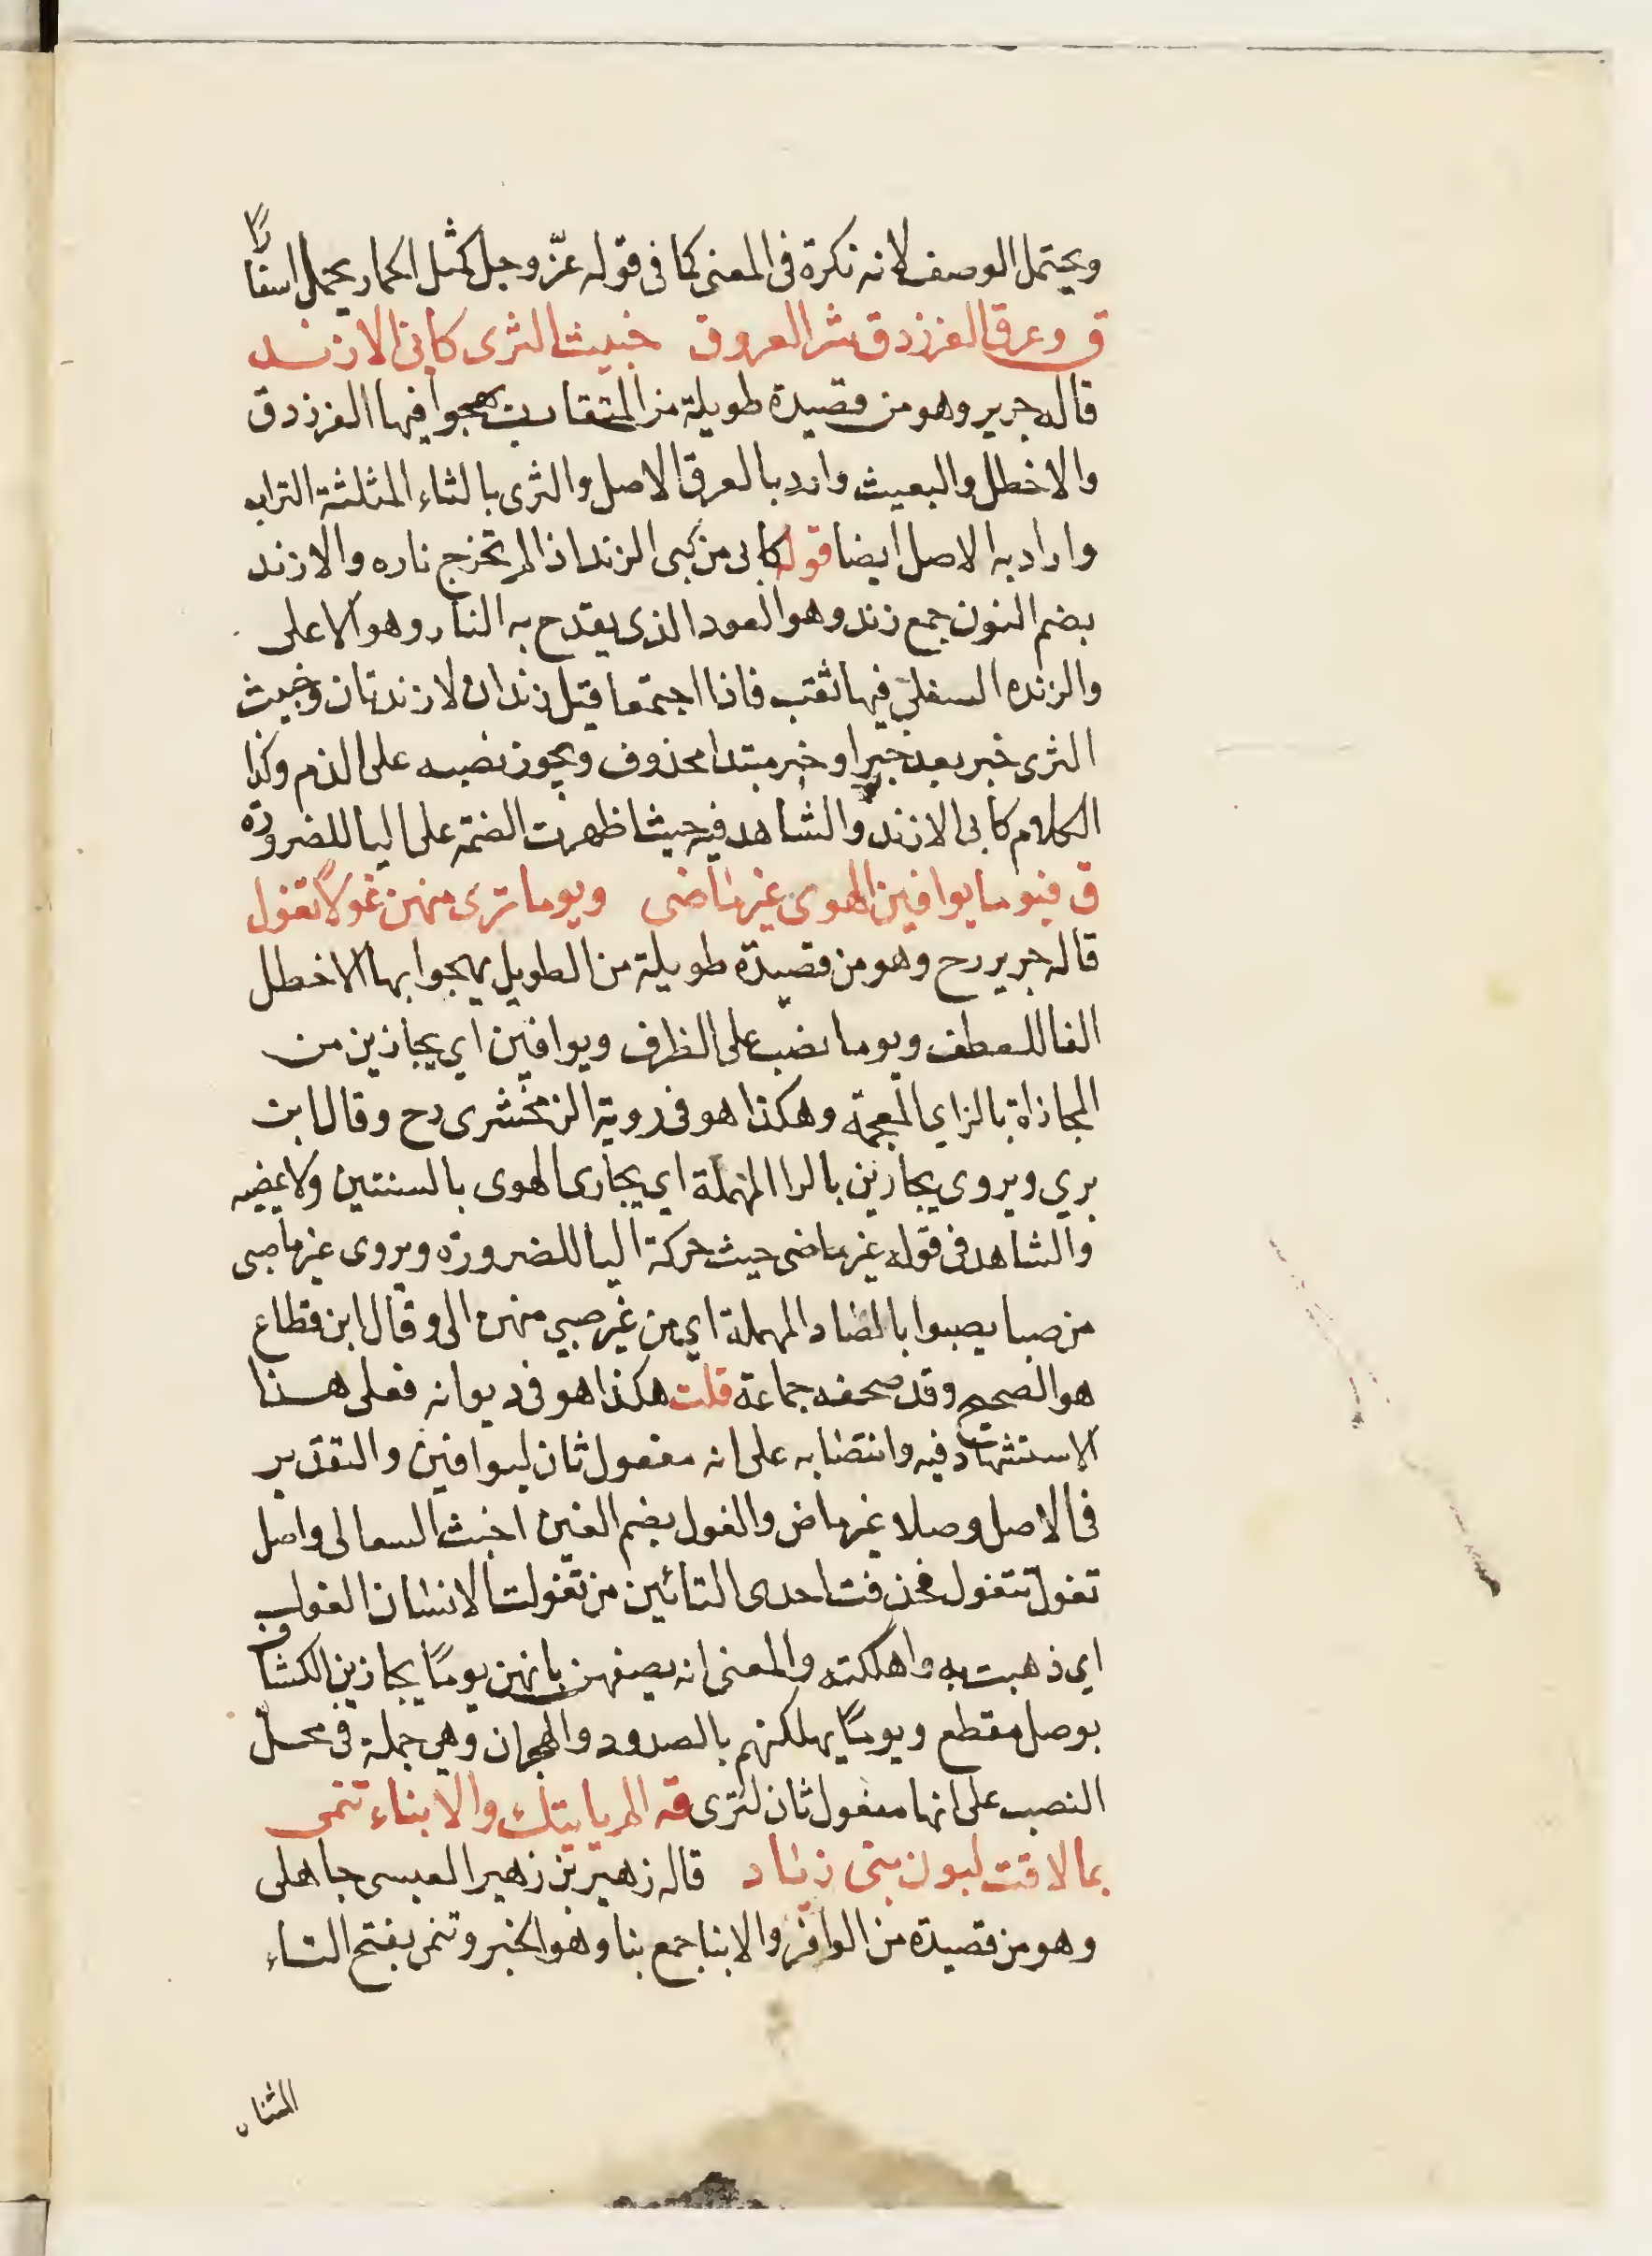 ويحتمل الوصف لانه نكرة في المعنى كما في قوله عزّ وجل كمثل الحمار يحمل اسفارًا
ق وعرق الفرزدق شر العروق خبيث الثرى كابى الازند
قاله جرير وهو من قصيدة طويلة من المتقارب يهجوا فيها الفرزدق
والاخطل والبعيث واراد بالعرق الاصل والثرى بالثاء المثلثة التراب
واراد به الاصل ايضا قوله كابى من كبى الزند اذا لم تخرج ناره والازند
بضم النون جمع زند وهو العود الذى يقدح به النار وهو الاعلى
والزنده السفلى فيها ثقب فاذا اجتمعا قيل زندان لا زندتان وخبيث
الثرى خبر بعد خبر او خبر مبتدا محذوف ويجوز نصبه على الذم وكذا
الكلام كابى الازند والشاهد فيه حيث اظهرت الضمة على اليا للضرورة
ق فيوما يوافين الهوى غير ماضى ويوما ترى منهن غولا تغول
قاله جرير رح وهو من قصيدة طويلة من الطويل يهجوا بها الاخطل
الفا للعطف ويوما نصب على الظرف ويوافين اي يجازين من
المجازاة بالزاي المعجمة وهكذا هو فى روية الزمخشرى رح وقال ابن
بري ويروى يجارين بالرا المهملة اي يجارى الهوى بالسنتين ولا يمضيه
والشاهد فى قوله غير ماضى حيث حركة اليا للضرورة ويروى غير ماصبى
من صبا يصبوا بالصاد المهملة اي من غير صبي منهن الى وقال ابن قطاع
هو الصحيح وقد صحفه جماعة قلت هكذا هو فى ديوانه فعلى هذا
الاستشهاد فيه وانتصابه على انه مفعول ثان ليوافين والتقدير
فى الاصل وصلا غير ماض والغول بضم الغين اخبث السعالى واصل
تغول تتغول فحذفت احدى التائين من تغولت الانسان الغول
اي ذهبت به واهلكته والمعنى انه يصفهن بانهن يومًا يجازين الكشاف
بوصل مقطع ويومًا يهلكنهم بالصدود والهجران وهي جملة فى محل
النصب على انها مفعول ثان لترى قه الم ياتيك والابناء تنمى
بما لاقت لبون بنى زياد قاله زهير بن زهير العبسى جاهلى
وهو من قصيدة من الوافر والابنا جمع بنا وهو الخبر وتنمى بفتح التاء
المثناه